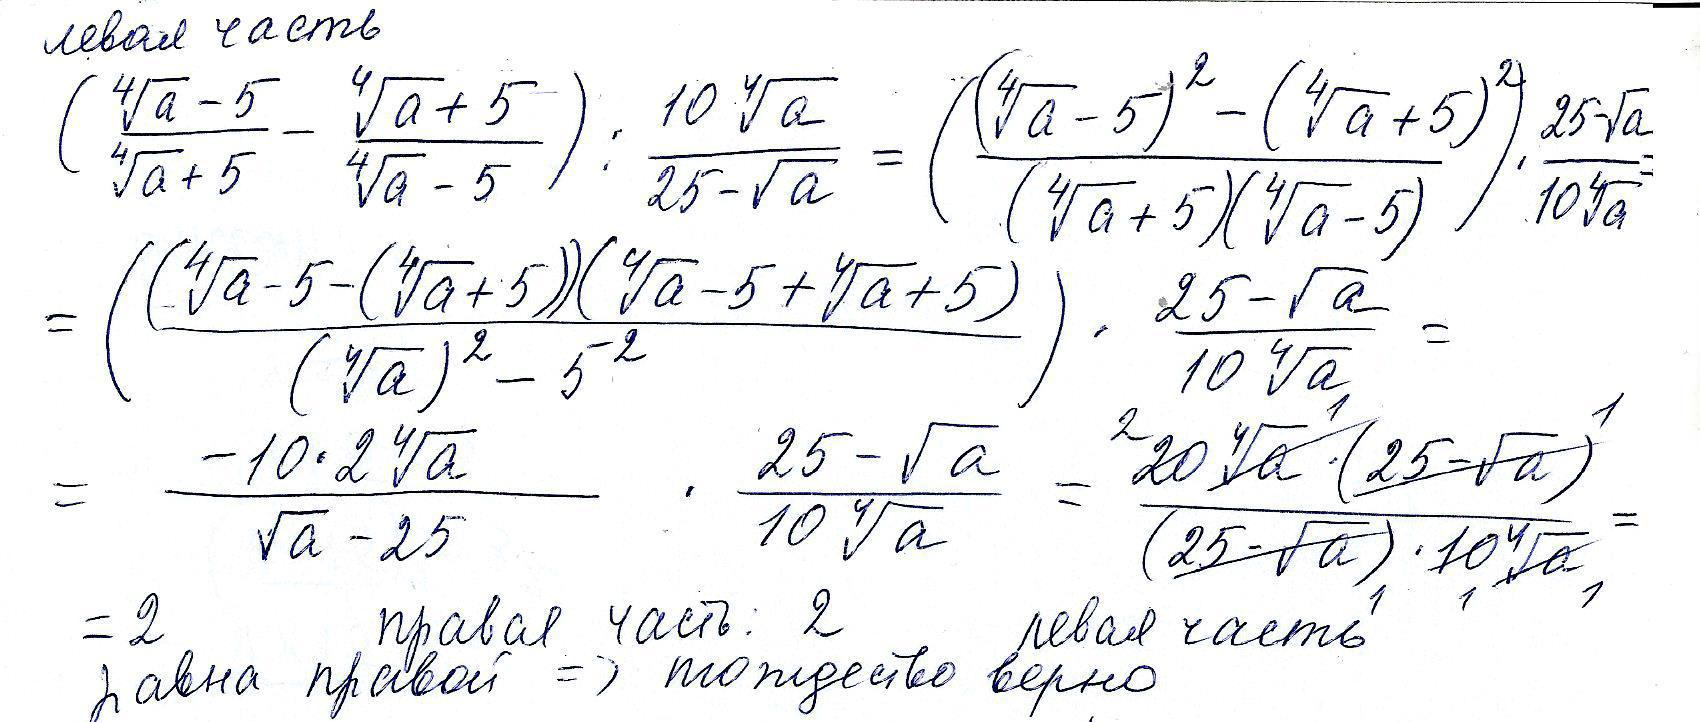 левая часть
(⁴√a - 5 / ⁴√a + 5 - ⁴√a + 5 / ⁴√a - 5) : 10⁴√a / 25 - √a = ((⁴√a - 5)² - (⁴√a + 5)² / (⁴√a + 5)(⁴√a - 5)) · 25 - √a / 10⁴√a =
= ((⁴√a - 5 - (⁴√a + 5))(⁴√a - 5 + ⁴√a + 5) / (⁴√a)² - 5²) · 25 - √a / 10⁴√a =
= -10 · 2⁴√a / √a - 25 · 25 - √a / 10⁴√a = ² 20⁴√a ¹ · (25 - √a) ¹ / (25 - √a) ₁ · 10 ₁ ⁴√a ₁ =
= 2 правая часть: 2 левая часть
равна правой => тождество верно